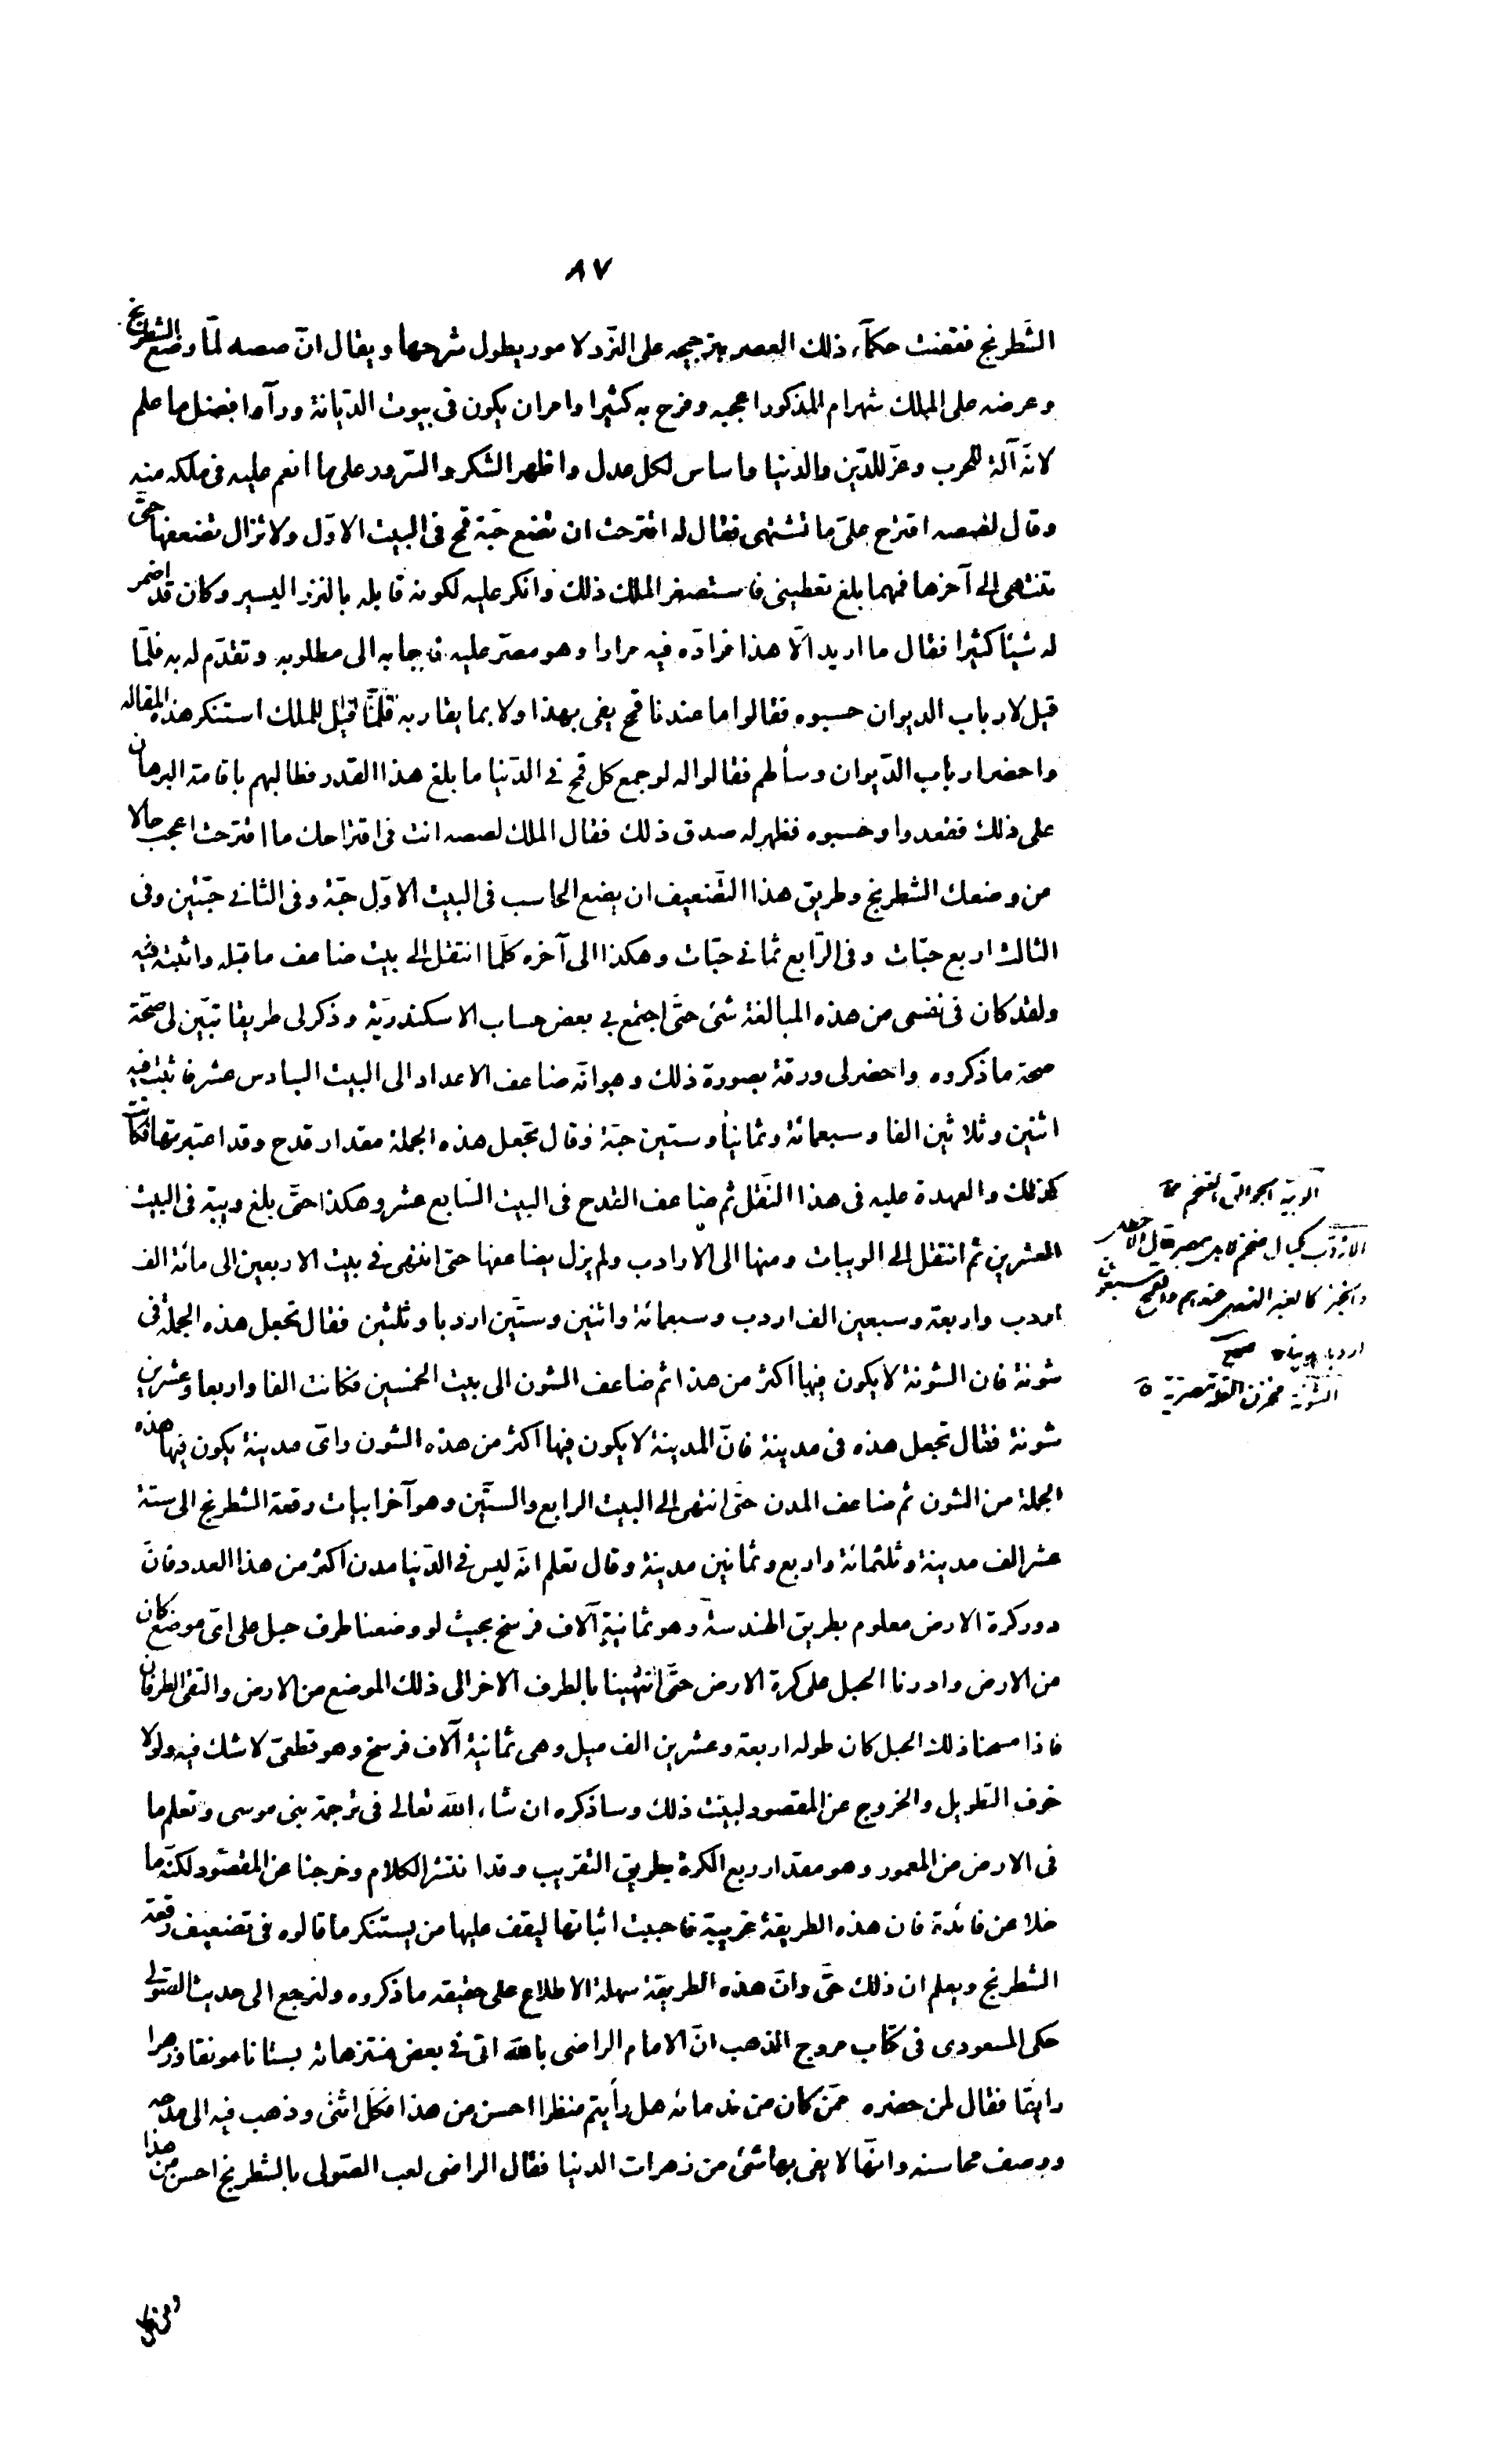 ٨٧
الشَّطرنج فقضت حكماء ذلك العصر بترجيحه على النّرد لامور يطول شرحها ويقال انّ صصه لمّا وضع الشطرنج
وعرضه على الملك شهرام المذكور اعجبه وفرح به كثيرا وامر ان يكون فى بيوت الدّيانة ورآه افضل ما علم
لانّه آلة للحرب وعزّ للدّين والدّنيا واساس لكل عدل واظهر الشكر والسّرور على ما انعم عليه فى ملكه منه
وقال لصصه اقترح علىّ ما تشتهى فقال له اقترحت ان تضع حبّة قمح فى البيت الاوّل ولا تزال تضعفها حتّى
تنتهى الى آخرها فمهما بلغ تعطينى فاستصغر الملك ذلك وانكر عليه لكونه قابله بالنزر اليسير وكان قد اضمر
له شيئا كثيرا فقال ما اريد الّا هذا فرادّه فيه مرارا وهو مصرّ عليه فاجابه الى مطلوبه وتقدّم له به فلمّا
قيل لارباب الديوان حسبوه فقالوا ما عندنا قمح يفى بهذا ولا بما يقاربه فلمّا قيل للملك استنكر هذه المقاله
واحضر ارباب الدّيوان وسألهم فقالوا له لو جمع كل قمح فى الدّنيا ما بلغ هذا القدر فطالبهم باقامة البرهان
على ذلك فقعدوا وحسبوه فظهر له صدق ذلك فقال الملك لصصه انت فى اقتراحك ما اقترحت اعجب حالا
من وضعك الشطرنج وطريق هذا التّضعيف ان يضع الحاسب فى البيت الاوّل حبّة وفى الثانى حبّتين وفى
الثالث اربع حبّات وفى الرّابع ثمانى حبّات وهكذا الى آخره كلّما انتقل الى بيت ضاعف ما قبله واثبته فيه
ولقد كان فى نفسى من هذه المبالغة شئ حتّى اجتمع بى بعض حساب الاسكندريّة وذكر لى طريقا تبيّن لى صحّة
صحة ما ذكروه واحضر لى ورقة بصورة ذلك وهو انّه ضاعف الاعداد الى البيت السادس عشر فاثبت فيه
اثنين وثلاثين الفا وسبعمائة وثمانيا وستين حبّة وقال تجعل هذه الجملة مقدار قدح وقد اعتبرتها فكانت
كذلك والعهدة عليه فى هذا النّقل ثم ضاعف القدح فى البيت السّابع عشر وهكذا حتّى بلغ ويبة فى البيت
العشرين ثم انتقل الى الويبات ومنها الى الارادب ولم يزل يضاعفها حتى انتهى فى بيت الاربعين الى مائة الف
اردب واربعة وسبعين الف اردب وسبعمائة واثنين وستّين اردبا وثلثين فقال تجعل هذه الجملة فى
شونة فان الشونة لا يكون فيها اكثر من هذا ثم ضاعف الشون الى بيت الخمسين فكانت الفا واربعا وعشرين
شونة فقال تجعل هذه فى مدينة فانّ المدينة لا يكون فيها اكثر من هذه الشون واىّ مدينة يكون فيها هذه
الجملة من الشون ثم ضاعف المدن حتّى انتهى الى البيت الرابع والستّين وهو آخر ابيات رقعة الشطرنج الى ستة
عشر الف مدينة وثلثمائة واربع وثمانين مدينة وقال تعلم انّه ليس فى الدّنيا مدن اكثر من هذا العدد فانّ
دور كرة الارض معلوم بطريق الهندسة وهو ثمانية آلاف فرسخ بحيث لو وضعنا طرف حبل على اىّ موضع كان
من الارض وادرنا الحبل على كرة الارض حتّى انتهينا بالطرف الاخر الى ذلك الموضع من الارض والتقى الطرفان
فاذا مسحنا ذلك الحبل كان طوله اربعة وعشرين الف ميل وهى ثمانية آلاف فرسخ وهو قطعىّ لا شك فيه ولولا
خوف التطويل والخروج عن المقصود لبيّنت ذلك وساذكره ان شاء الله تعالى فى ترجمة بنى موسى وتعلم ما
فى الارض من المعمور وهو مقدار ربع الكرة بطريق التقريب وقد انتشر الكلام وخرجنا عن المقصود لكنّه ما
خلا عن فائدة فان هذه الطريقة غريبة فاحببت اثباتها ليقف عليها من يستنكر ما قالوه فى تضعيف رقعة
الشطرنج ويعلم ان ذلك حقّ وانّ هذه الطريقة سهلة الاطلاع على حقيقه ما ذكروه ولنرجع الى حديث الصّولى
حكى المسعودى فى كتاب مروج الذهب انّ الامام الراضى بالله اتى فى بعض منتزهاته بستانا مونقا وزهرا
رايقا فقال لمن حضره ممّن كان من ندمائه هل رأيتم منظرا احسن من هذا فكل اثنى وذهب فيه الى مدحه
ووصف محاسنه وانّها لا يفى بها شئ من زهرات الدنيا فقال الراضى لعب الصّولى بالشطرنج احسن من هذا
الويبة
الاردبّ مكيال ضخم بمصر
اردبا
الشونة مخزن الغلة مصرية